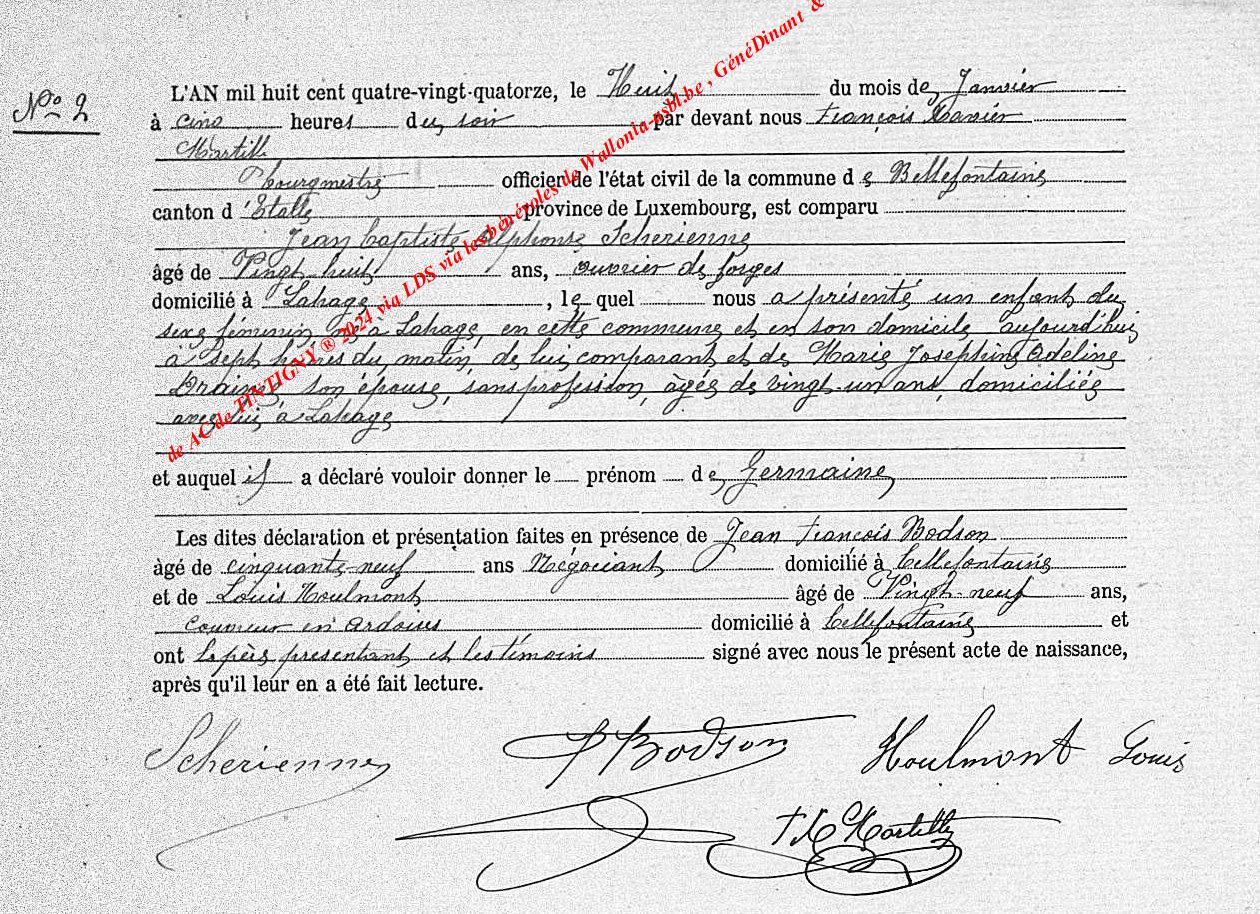 N° 2
L'AN mil huit cent quatre-vingt-quatorze, le Huit du mois de Janvier
à cinq heures du soir par devant nous François Xavier
Martilly
bourgmestre officier de l'état civil de la commune de Bellefontaine
canton d'Etalle province de Luxembourg, est comparu
Jean Baptiste Alphonse Scherienne
âgé de Vingt huit ans, ouvrier de forges
domicilié à Lahage, le quel nous a présenté un enfant du
sexe féminin né à Lahage, en cette commune et en son domicile aujourd'hui
à sept heures du matin, de lui comparant et de Marie Josephine Odeline
son épouse, sans profession, âgée de vingt-un ans, domiciliée
avec lui à Lahage
et auquel il a déclaré vouloir donner le prénom de Germaine
Les dites déclaration et présentation faites en présence de Jean François Bodson
âgé de cinquante-neuf ans Négociant domicilié à bellefontaine
et de Louis Houlmont âgé de Vingt-neuf ans,
couvreur en ardoises domicilié à bellefontaine et
ont le père présentant et les témoins signé avec nous le présent acte de naissance,
après qu'il leur en a été fait lecture.
Scherienne Bodson Houlmont Louis
Martilly
de AC de TINTIGNY ® 2024 via LDS via les bénévoles de Wallonia-asbl.be , GénéDinant &